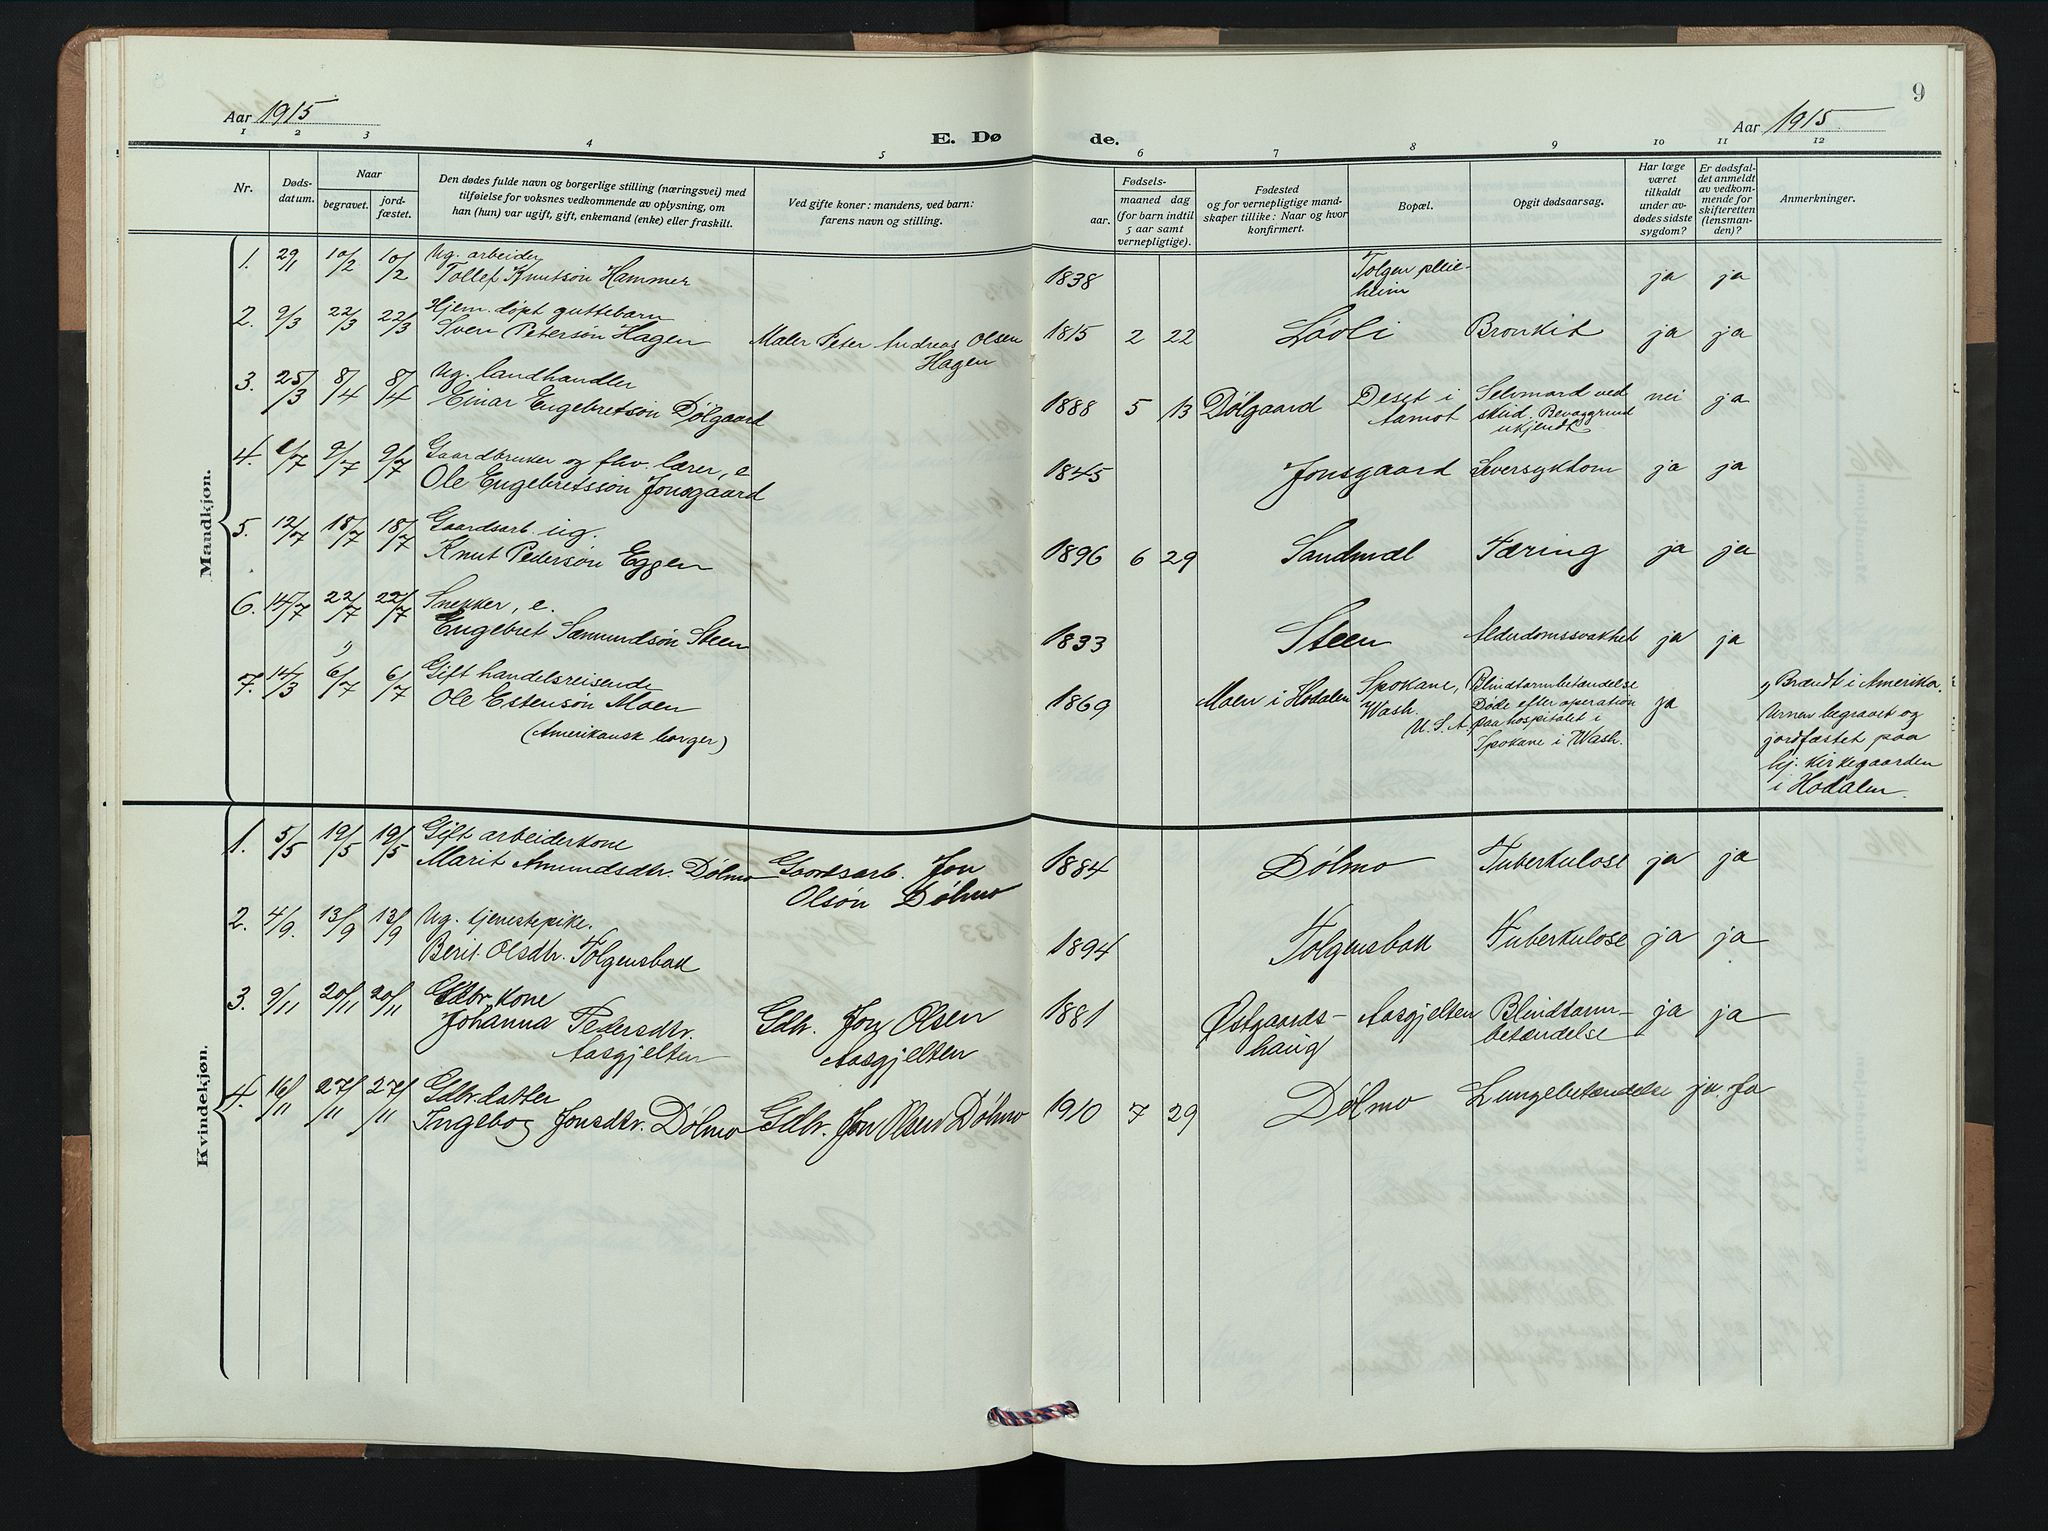 Aar 1915
E. Dø
de.
Aar 1915
9
1 2 3 4 5 6 7 8 9 10 11 12
Nr.
Døds-
datum.
Naar
begravet.
jord-
fæstet.
Den dødes fulde navn og borgerlige stilling (næringsvei) med
tilføielse for voksnes vedkommende av oplysning, om
han (hun) var ugift, gift, enkemand (enke) eller fraskilt.
Ved gifte koner: mandens, ved barn:
farens navn og stilling.
Fødsels-
aar.
maaned dag
(for barn indtil
5 aar samt
vernepligtige).
Fødested
og for vernepligtige mand-
skaper tillike: Naar og hvor
konfirmert.
Bopæl.
Opgit dødsaarsag.
Har læge
været
tilkaldt
under av-
dødes sidste
sygdom?
Er dødsfal-
det anmeldt
av vedkom-
mende for
skifteretten
(lensman-
den)?
Anmerkninger.
Mandkjøn.
1. 29/1 10/2 10/2 Ug. arbeider
Tollef Knutsøn Hammer
1838 Tolgen pleie-
heim ja ja
2. 9/3 22/3 22/3 Hjem. døpt guttebarn
Sven Petersøn Hagen Maler Peter Andreas Olsen
Hagen
1815 2 22 Løoli Bronkit ja ja
3. 25/3 8/4 8/4 Ug. landhandler
Einar Engebretsøn Dølgaard
1888 5 13 Dølgaard Deset i
Aamot Selvmord ved
skud. Bevæggrund
ukjendt. nei ja
4. 2/7 9/7 9/7 Gaardbruker og fhv. lærer, e
Ole Engebretssøn Jonsgaard
1845 Jonsgaard Leversykdom ja ja
5. 12/7 18/7 18/7 Gaardsarb. ug.
Knut Pedersøn Eggen
1896 6 29 Sandmæl Tæring ja ja
6. 14/7 22/7 22/7 Snekker, e.
Engebret Sæmundsøn Steen
1833 Steen Alderdomssvakhet ja ja
7. 14/3 1) 6/7 6/7 Gift handelsreisende
Ole Estensøn Moen
(Amerikansk borger)
1869 Moen i Hodalen Spokane,
Wash.
U. S. A. Blindtarmbetændelse
Døde efter operation
paa hospitalet i
Spokane i Wash. ja
1) Brændt i Amerika.
Urnen begravet og
jordfæstet paa
hj. kirkegaarden
i Hodalen.
Kvindekjøn.
1. 5/5 19/5 19/5 Gift arbeiderkone
Marit Amundsdtr. Dølmo Gaardsarb. Jon
Olsøn Dølmo
1884 Dølmo Tuberkulose ja ja
2. 4/9. 13/9 13/9 Ug. tjenestepike.
Berit Olsdtr. Tolgensbak
1894 Tolgensbak Tuberkulose ja ja
3. 9/11 20/11 20/11 Gdbr. kone
Johanna Pedersdtr.
Aasgjelten Gdbr. Jon Olsen
Aasgjelten
1881 Østgaards-
haug Aasgjelten Blindtarm-
betændelse ja ja
4. 16/11 27/11 27/11 Gdbr. datter
Ingebog Jonsdtr. Dølmo Gdbr. Jon Olsen Dølmo
1910 7 29 Dølmo Lungebetændelse ja. Ja